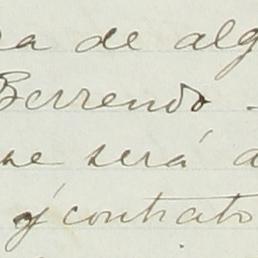 ra de alg
Berrendo -
se será a
y contrato